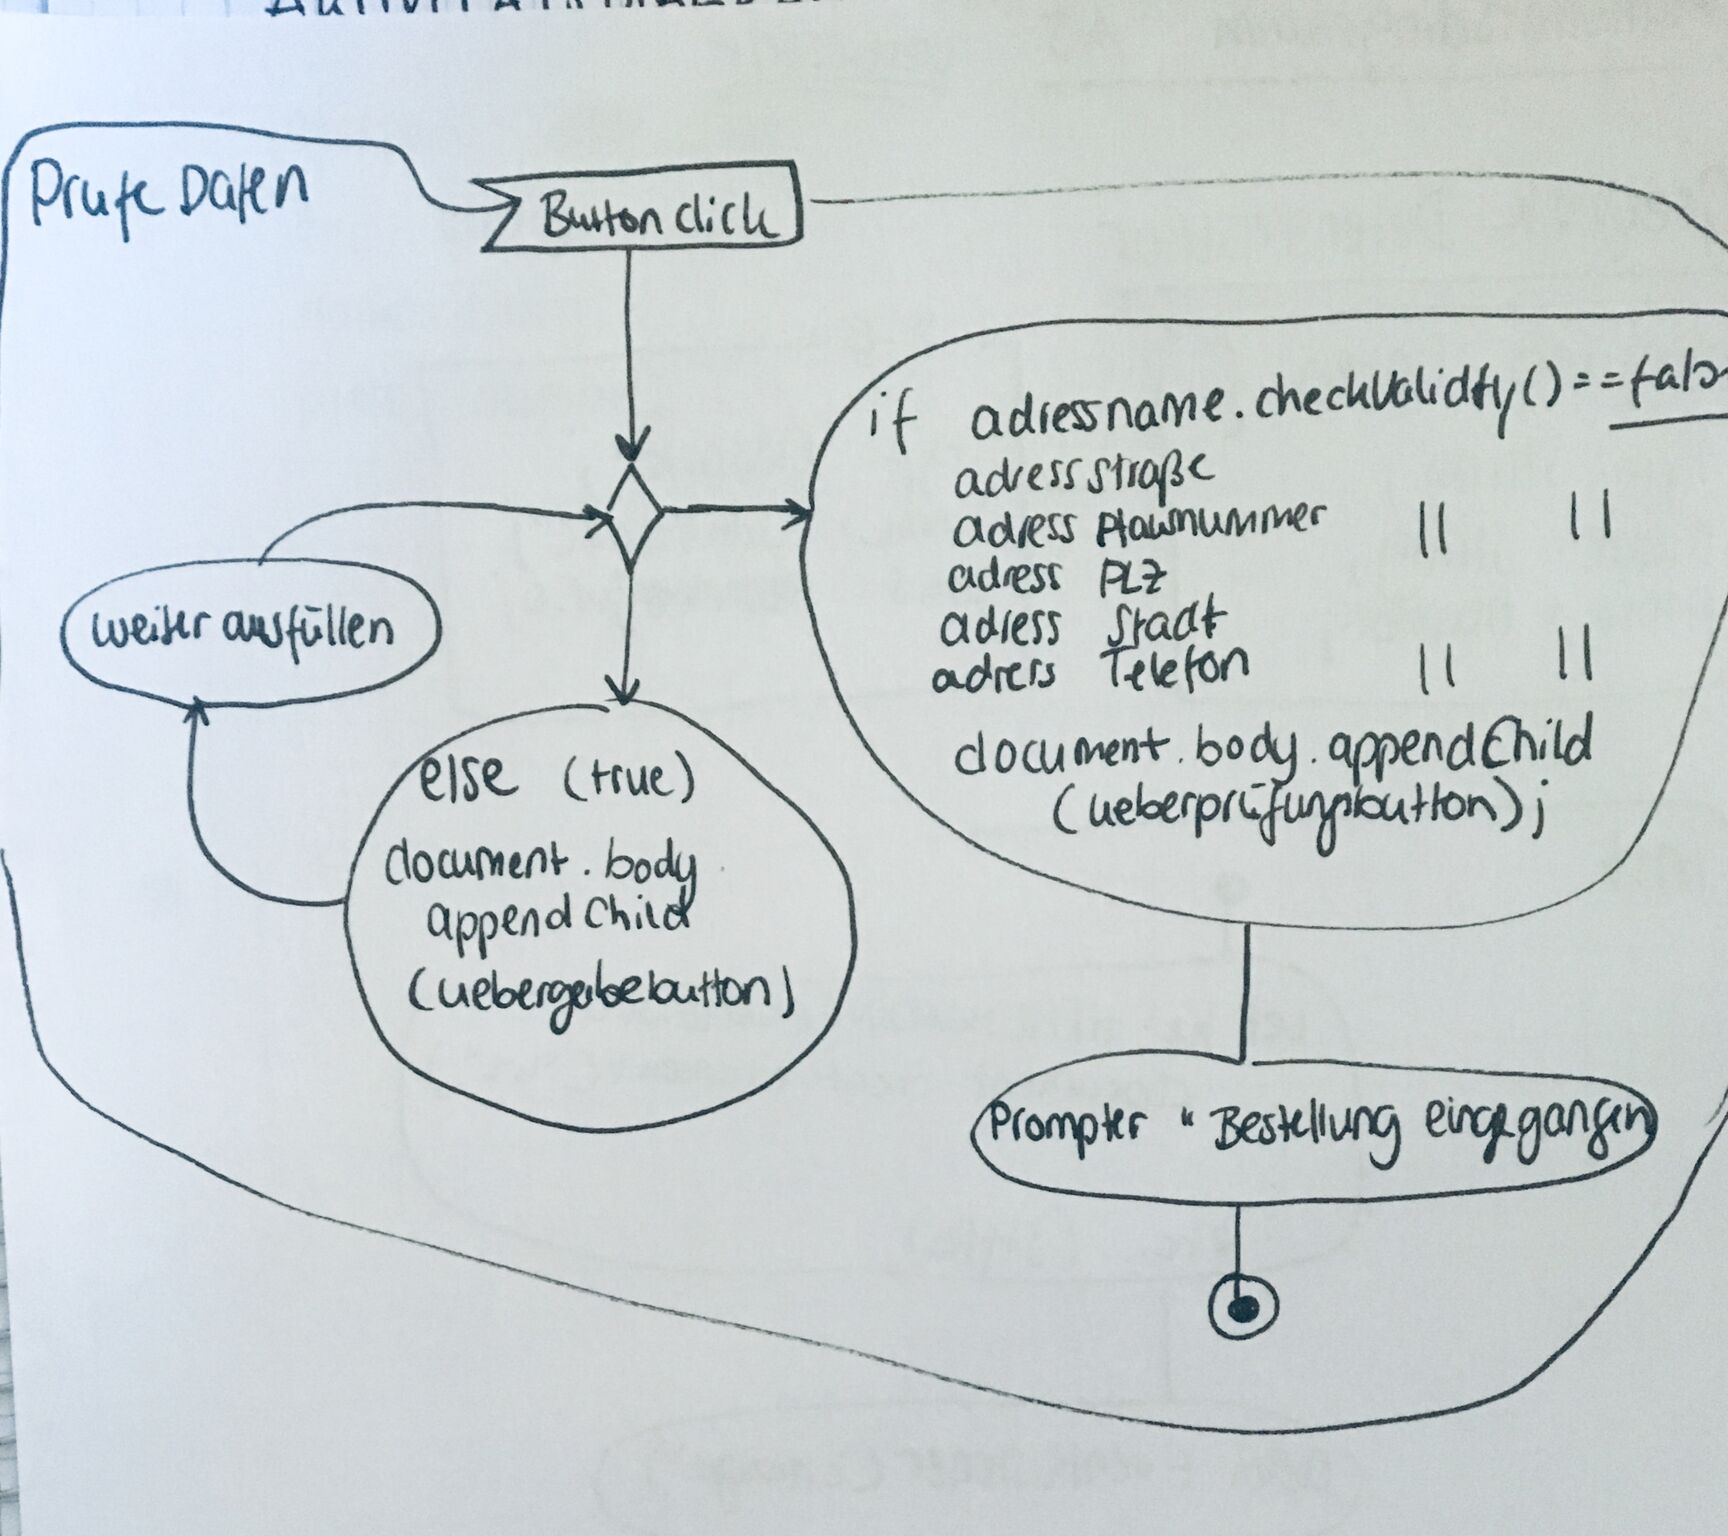 Prüfe Daten
Buttonclick
if adressname.checkValidity()==false
adressstraße
adress Hausnummer || ||
adress PLZ
adress Stadt
adress Telefon || ||
document.body.appendChild
(ueberprüfungsbutton);
weiter ausfüllen
else (true)
document.body
appendChild
(uebergabebutton)
Prompter "Bestellung eingegangen